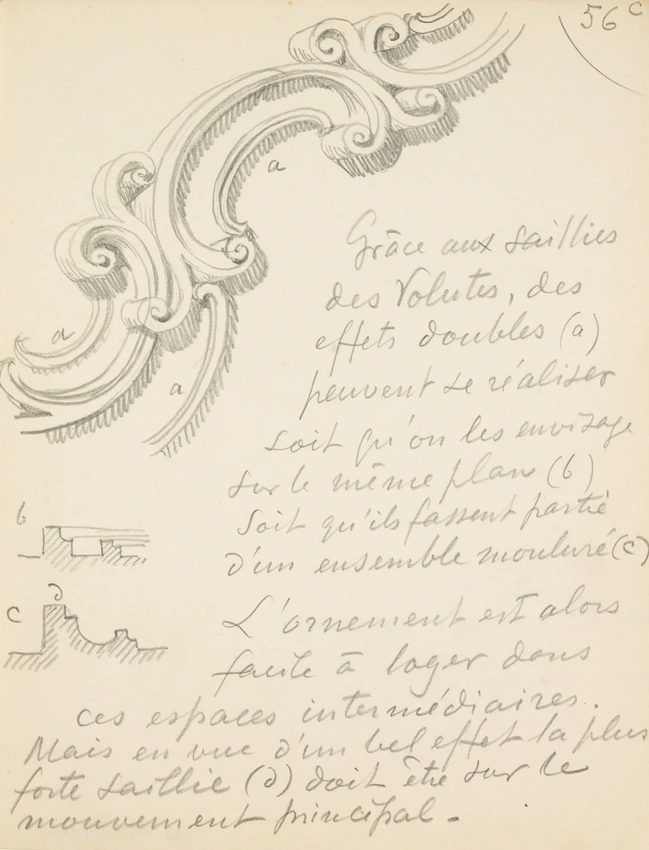 56 c
a
Grâce aux saillies
des Volutes, des
effets doubles (a)
peuvent se réaliser
a
a
soit qu'on les envisage
sur le même plan (b)
b
soit qu'ils fassent partie
d'un ensemble mouluré (c)
d
c
L'ornement est alors
facile à loger dans
ces espaces intermédiaires.
Mais en vue d'un bel effet la plus
forte saillie (d) doit être sur le
mouvement principal -